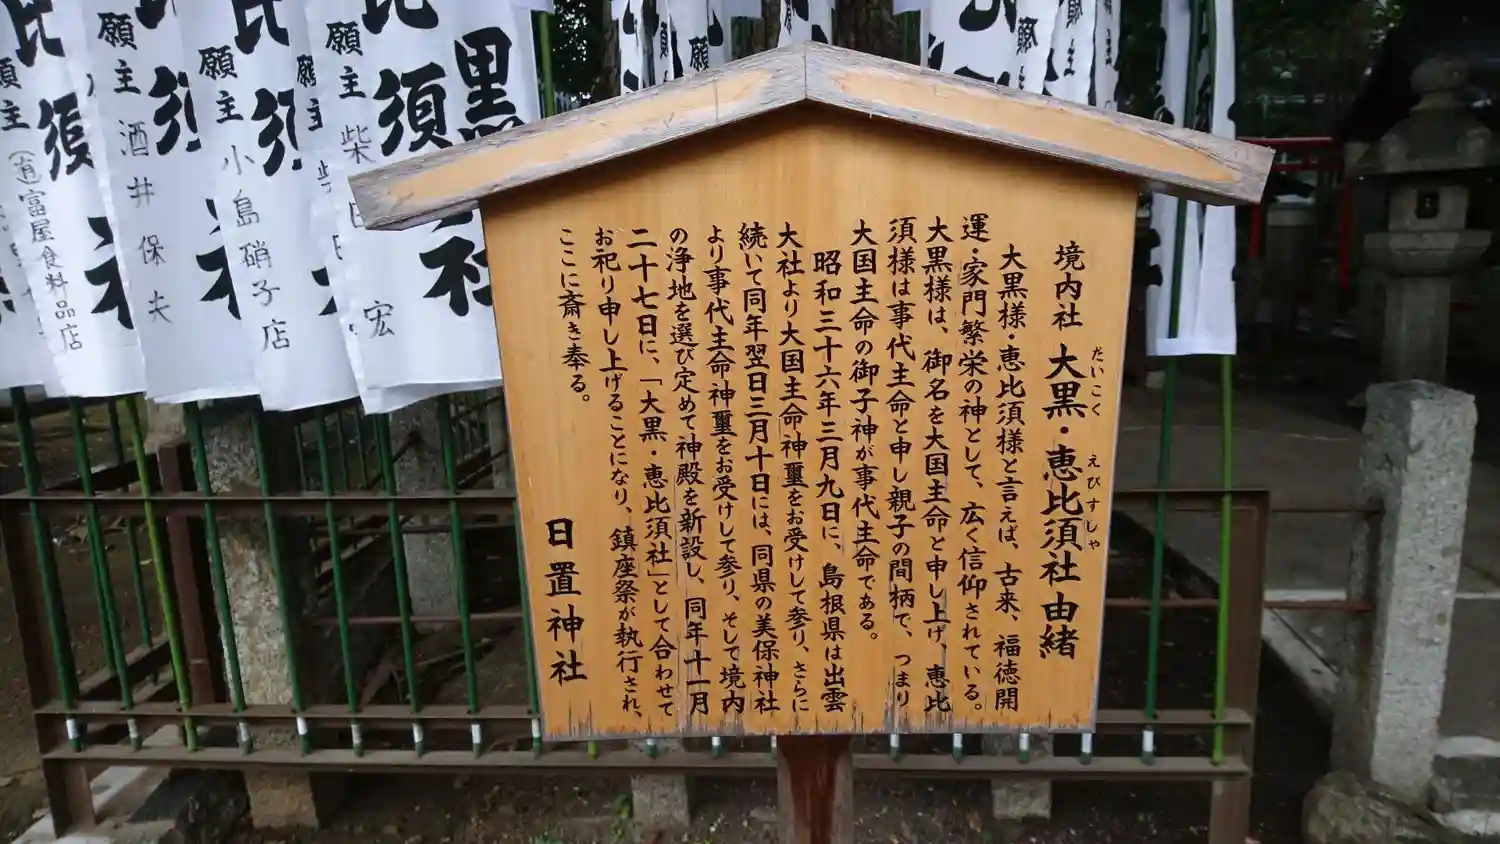 境内社 大黒・恵比須社 由緒
だいこく えびすしゃ
大黒様・恵比須様と言えば、古来、福徳開
運・家門繁栄の神として、広く信仰されている。
大黒様は、御名を大国主命と申し上げ、恵比
須様は事代主命と申し親子の間柄で、つまり
大国主命の御子神が事代主命である。
昭和三十六年三月九日に、島根県は出雲
大社より大国主命神璽をお受けして参り、さらに
続いて同年翌日三月十日には、同県の美保神社
より事代主命神璽をお受けして参り、そして境内
の浄地を選び定めて神殿を新設し、同年十一月
二十七日に、「大黒・恵比須社」として合わせて
お祀り申し上げることになり、鎮座祭が執行され、
ここに斎き奉る。
日置神社
黒
社
比須
願主 柴田 宏
比須
願主 小島硝子店
須
願主 酒井保夫
比須社
願主 (有)富屋食料品店
願主
願主